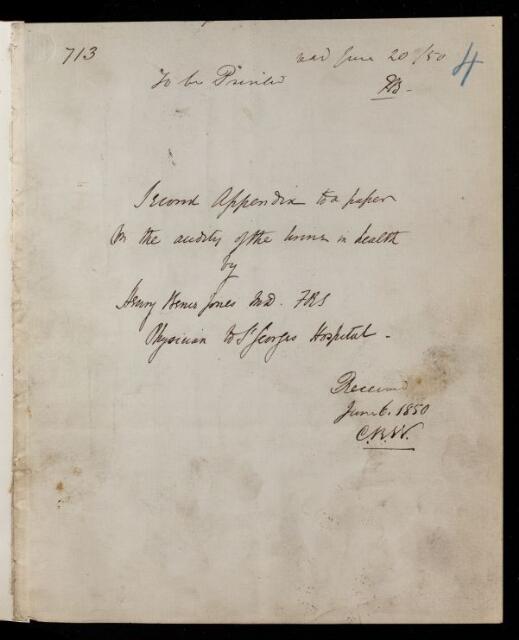 713
read June 20 /50
4
To be Printed
Second Appendix to a paper
On the acidity of the urine in health
by
Henry Bence Jones M.D. FRS
Physician to St Georges Hospital -
Received
June 6. 1850
C.R.W.